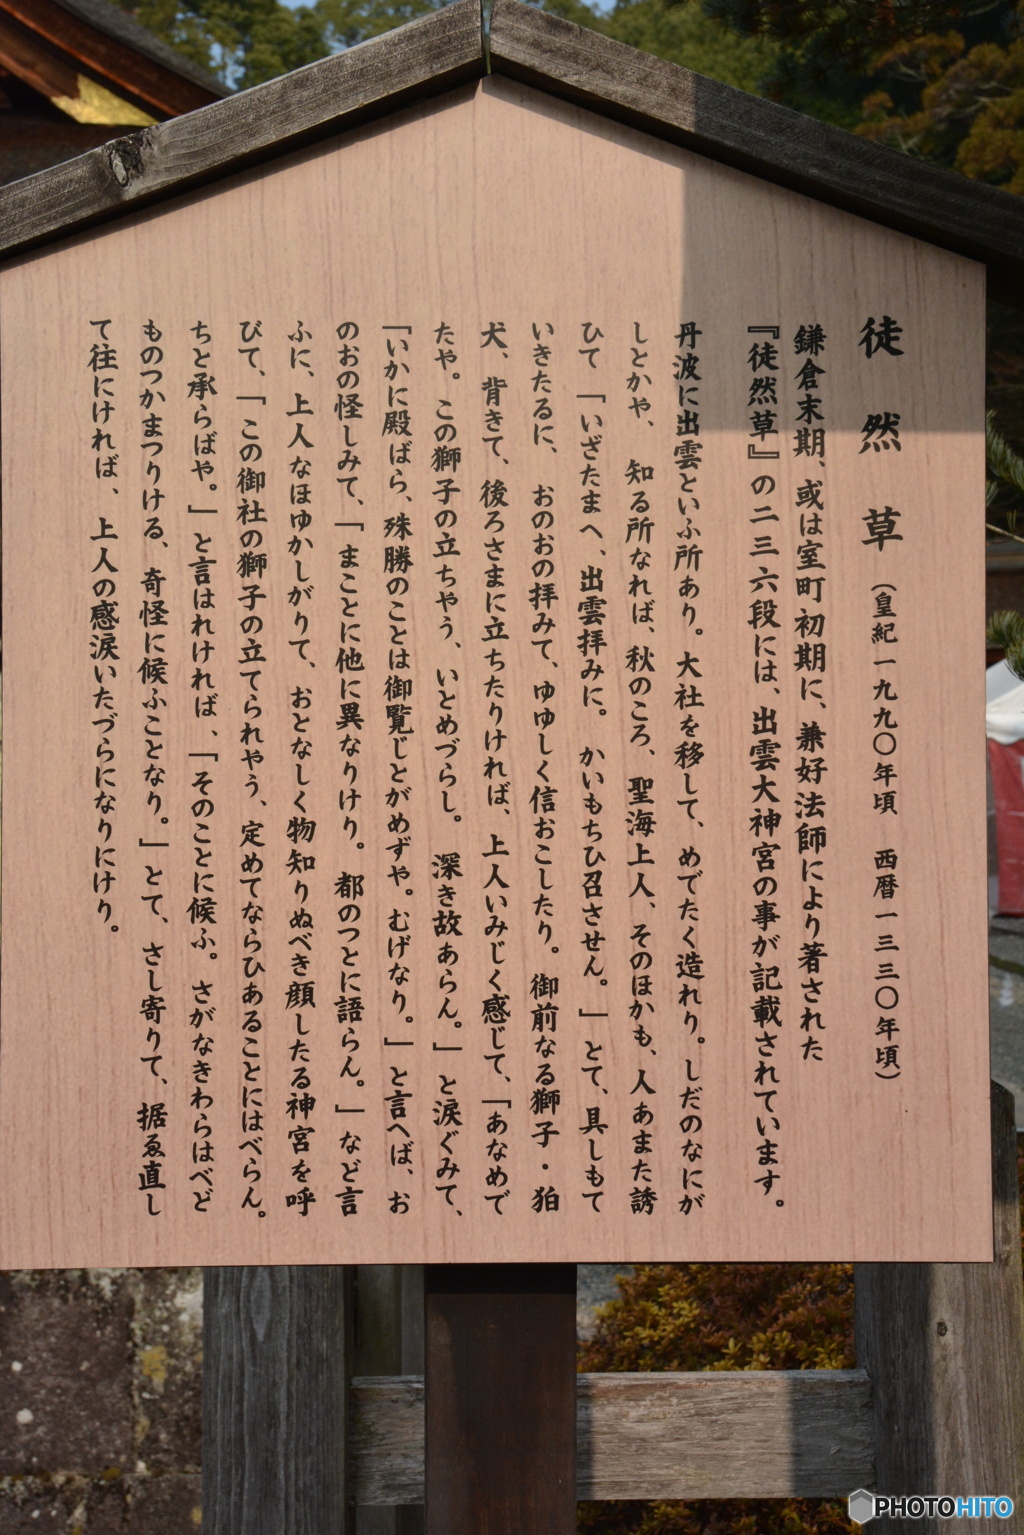 徒然草（皇紀一九九〇年頃　西暦一三三〇年頃）
鎌倉末期、或は室町初期に、兼好法師により著された
『徒然草』の二三六段には、出雲大神宮の事が記載されています。
丹波に出雲といふ所あり。大社を移して、めでたく造れり。しだのなにが
しとかや、知る所なれば、秋のころ、聖海上人、そのほかも、人あまた誘
ひて「いざたまへ、出雲拝みに。かいもちひ召させん。」とて、具しもて
いきたるに、おのおの拝みて、ゆゆしく信おこしたり。御前なる獅子・狛
犬、背きて、後ろさまに立ちたりければ、上人いみじく感じて、「あなめで
たや。この獅子の立ちやう、いとめづらし。深き故あらん。」と涙ぐみて、
「いかに殿ばら、殊勝のことは御覧じとがめずや。むげなり。」と言へば、お
のおの怪しみて、「まことに他に異なりけり。都のつとに語らん。」など言
ふに、上人なほゆかしがりて、おとなしく物知りぬべき顔したる神宮を呼
びて、「この御社の獅子の立てられやう、定めてならひあることにはべらん。
ちと承らばや。」と言はれければ、「そのことに候ふ。さがなきわらはべど
ものつかまつりける、奇怪に候ふことなり。」とて、さし寄りて、据ゑ直し
て往にければ、上人の感涙いたづらになりにけり。
PHOTOHITO